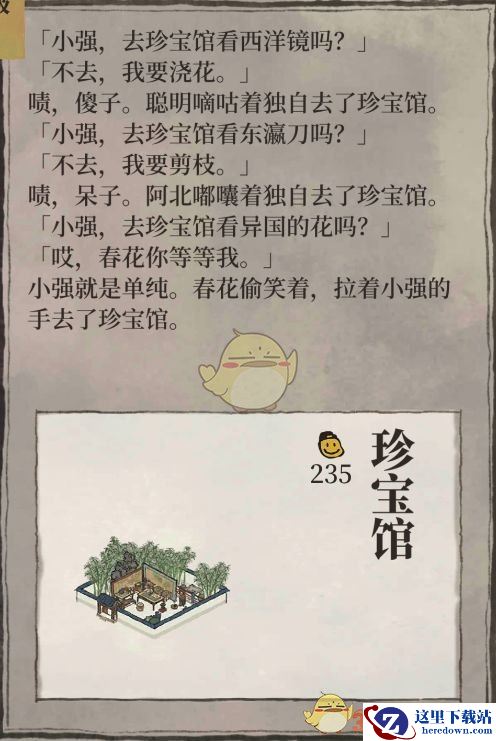 「小强，去珍宝馆看西洋镜吗？」
「不去，我要浇花。」
啧，傻子。聪明嘀咕着独自去了珍宝馆。
「小强，去珍宝馆看东瀛刀吗？」
「不去，我要剪枝。」
啧，呆子。阿北嘟囔着独自去了珍宝馆。
「小强，去珍宝馆看异国的花吗？」
「哎，春花你等等我。」
小强就是单纯。春花偷笑着，拉着小强的
手去了珍宝馆。
235
珍宝馆
Z
这里下载站
heredown.com